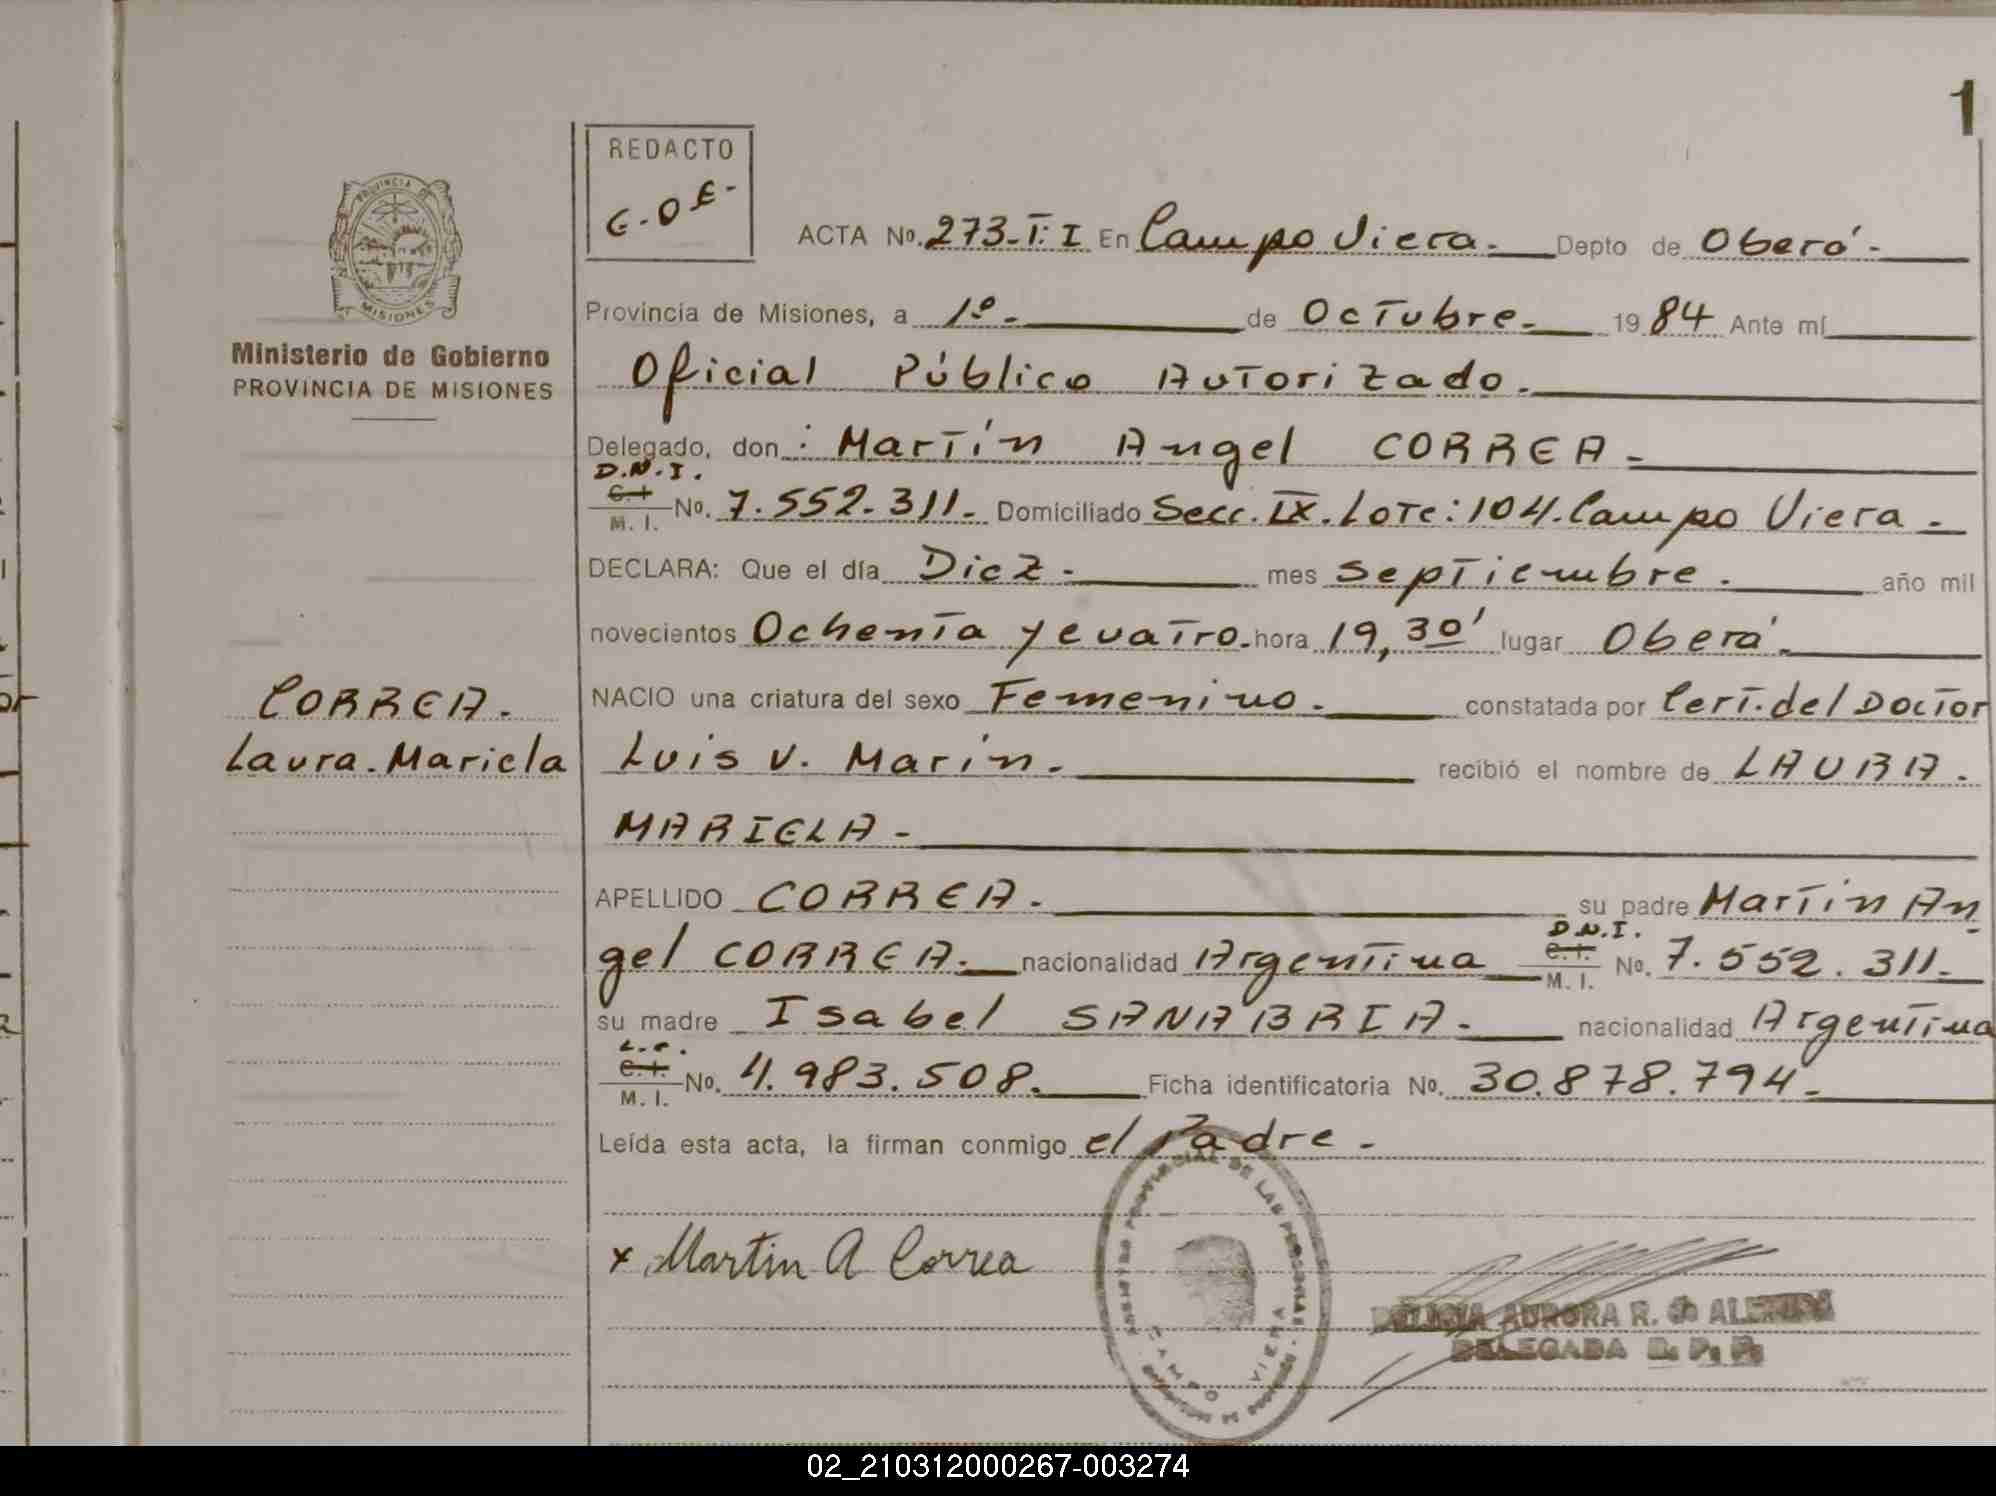 1
REDACTO
G.O.E.-
ACTA No. 273-T: I En Campo Viera.- Depto de Oberá.-
PROVINCIA DE
MISIONES
Ministerio de Gobierno
PROVINCIA DE MISIONES
Provincia de Misiones, a 1º.- de Octubre.- 1984 Ante mí
Oficial Público Autorizado.-
Delegado, don: Martín Angel CORREA.-
D.N.I.
C.I.
M. I. No. 7.552.311.- Domiciliado Secc. IX. Lote: 104. Campo Viera.-
DECLARA: Que el día Diez.- mes Septiembre.- año mil
novecientos Ochenta y cuatro.- hora 19,30' lugar Oberá.-
NACIO una criatura del sexo Femenino.- constatada por Cert. del Doctor
CORREA.-
Laura. Mariela
Luis V. Marín.- recibió el nombre de LAURA.
MARIELA.-
APELLIDO CORREA.- su padre Martín An
gel CORREA.- nacionalidad Argentina D.N.I. C.I. M. I. No. 7.552.311.-
su madre Isabel SANABRIA.- nacionalidad Argentina
L.C.
C.I.
M. I. No. 4.983.508.- Ficha identificatoria No. 30.878.794.-
Leída esta acta, la firman conmigo el Padre.-
x Martin A Correa
PROVINCIAL DE LAS PERSONAS
CAMPO VIERA
AURORA R. de
DELEGADA R. P. P.
02_210312000267-003274